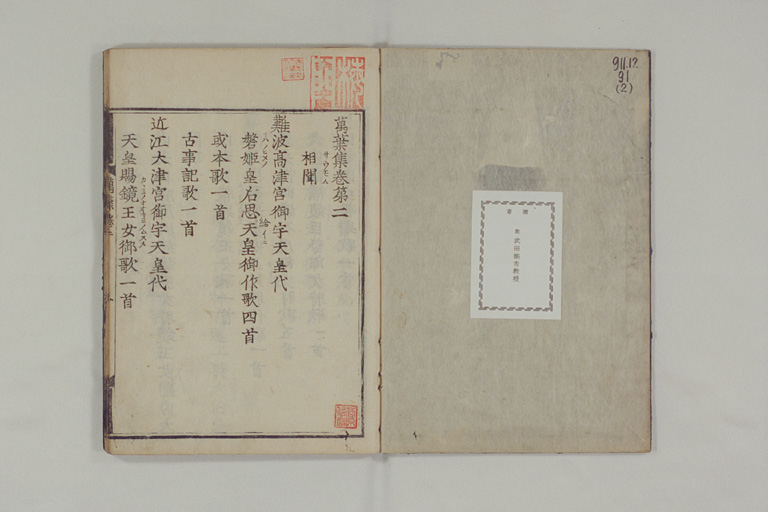 911.12
91
(2)
寄贈
萬葉集卷第二
相聞
サウモム
難波高津宮御宇天皇代
磐姬皇后思天皇御作歌四首
或本歌一首
古事記歌一首
近江大津宮御宇天皇代
天皇賜鏡王女御歌一首